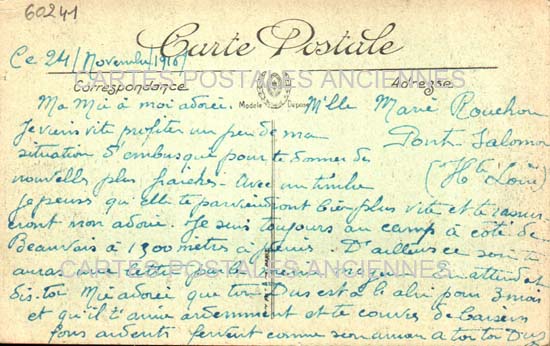 60241
Ce 24/Novembre/1916/
Carte Postale
CARTES POSTALES ANCIENNES
Correspondance
Adresse
Modèle Déposé
Ma Mie à moi adorée.
M'lle Marie Rouchon
Je viens vite profiter un peu de ma
Pont-Salomon
situation d'embusqué pour te donner de
(Hte Loire)
nouvelles plus fraîches. Avec un timbre
je pense qu'elle te parviendront bien plus vite et te rassu-
reront mon adorée. Je suis toujours au camp à côté de
Beauvais à 1300 mètres à D'ailleurs ce soir tu
auras une lettre par le même En attendant
CARTES POSTALES ANCIENNES
dis-toi Mie adorée que ton Dus est à l'abri pour 3 mois
et qu'il t'aime ardemment et te couvre de baisers
fous ardents fervent comme son amour à toi ton Dus